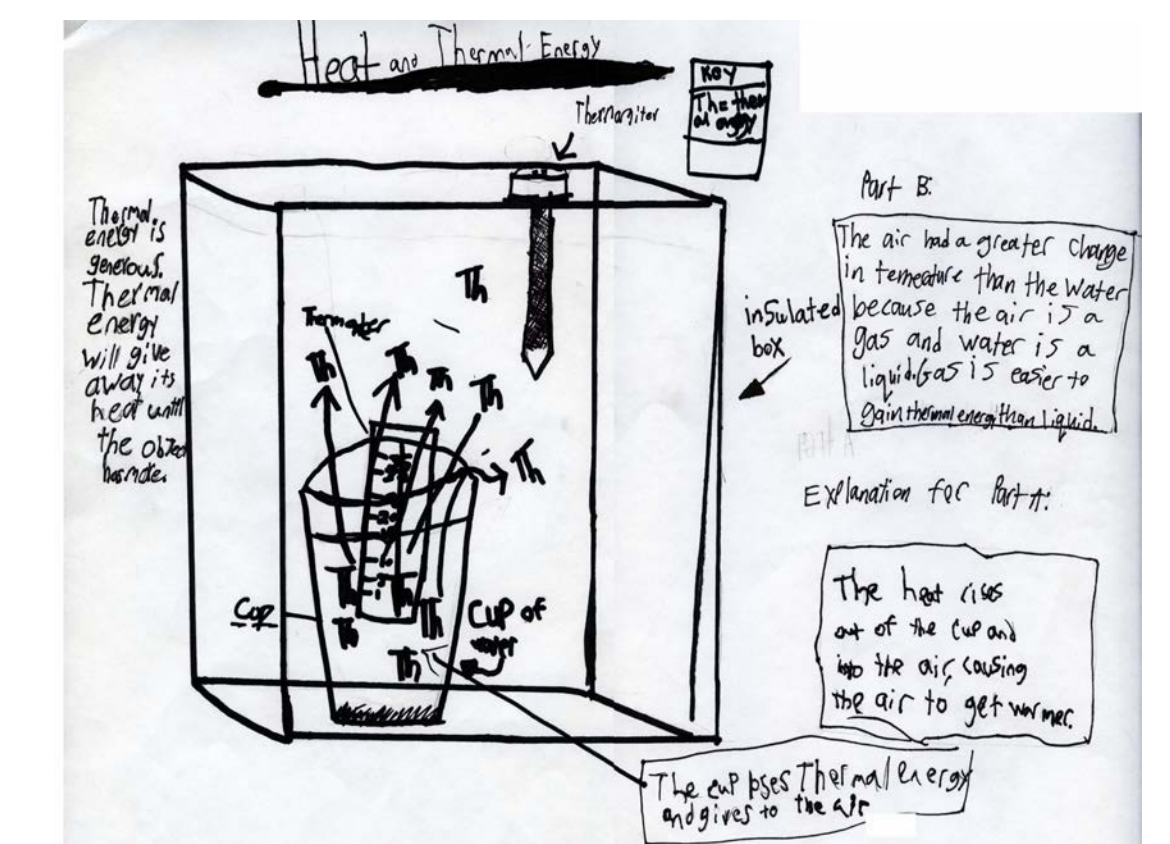 Heat and Thermal Energy
KEY
Th = therm
al enrgy
Thermomiter
Thermal
energy is
generous.
Thermal
energy
will give
away its
heat until
the object
has more.
Th
Th
Th
Th
Th
Th
insulated
box
Part B:
The air had a greater change
in temeature than the water
because the air is a
gas and water is a
liquid. Gas is easier to
gain thermal energy than liquid.
Explanation for Part A:
The heat rises
out of the cup and
into the air, causing
the air to get warmer.
Cup
Th
Th
Th
Th
Th
Cup of
water
The cup loses Thermal energy
and gives to the air